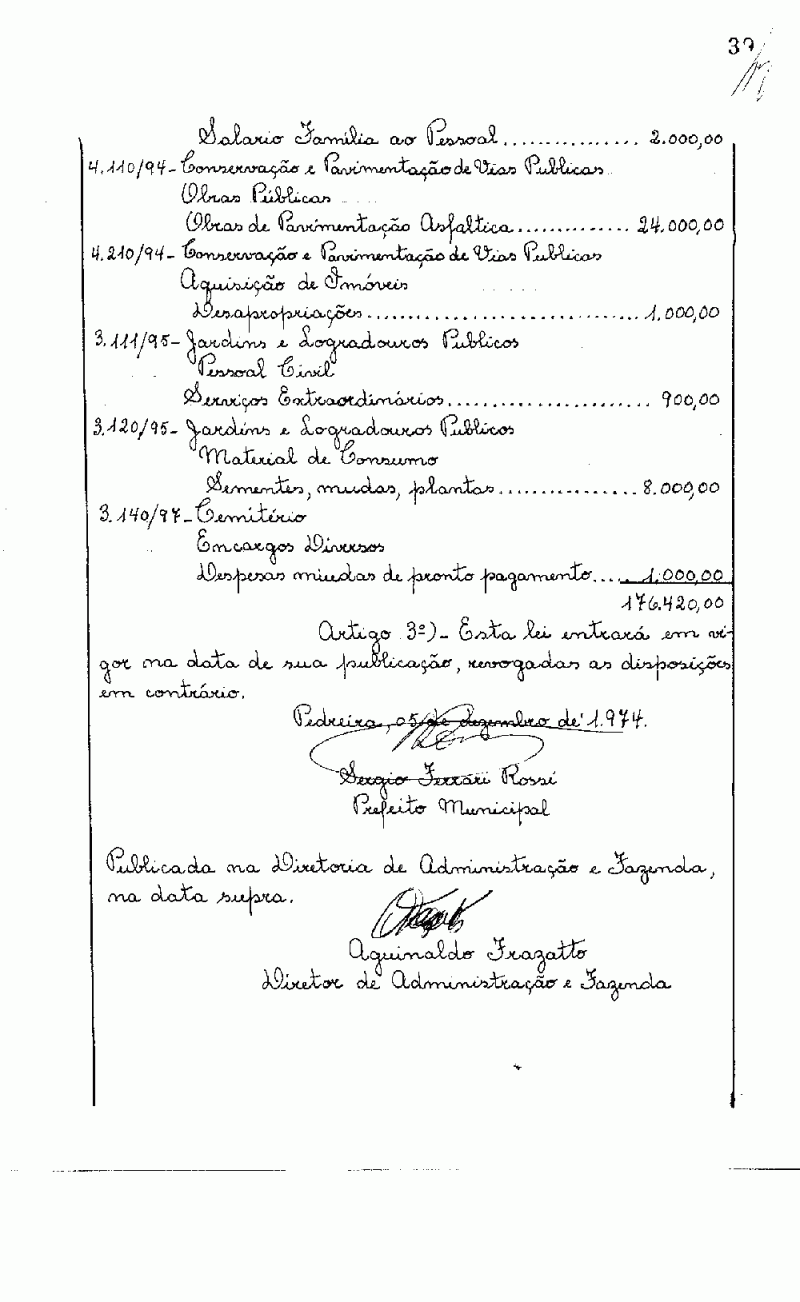 39
Salario Família ao Pessoal................ 2.000,00
4.110/94- Conservação e Pavimentação de Vias Publicas
Obras Públicas
Obras de Pavimentação Asfaltica.............. 24.000,00
4.210/94- Conservação e Pavimentação de Vias Publicas
Aquisição de Imóveis
Desapropriações................................. 1.000,00
3.111/95- Jardins e Logradouros Publicos
Pessoal Civil
Serviços Extraordinários........................ 900,00
3.120/95- Jardins e Logradouros Publicos
Material de Consumo
Sementes, mudas, plantas................. 8.000,00
3.140/97- Cemitério
Encargos Diversos
Despesas miudas de pronto pagamento.... 1.000,00
176.420,00
Artigo 3º)- Esta lei entrará em vi-
gor na data de sua publicação, revogadas as disposições
em contrário.
Pedreira, 05 de dezembro de 1.974.
Sergio Ferrari Rossi
Prefeito Municipal
Publicada na Diretoria de Administração e Fazenda,
na data supra.
Aguinaldo Frazatto
Diretor de Administração e Fazenda